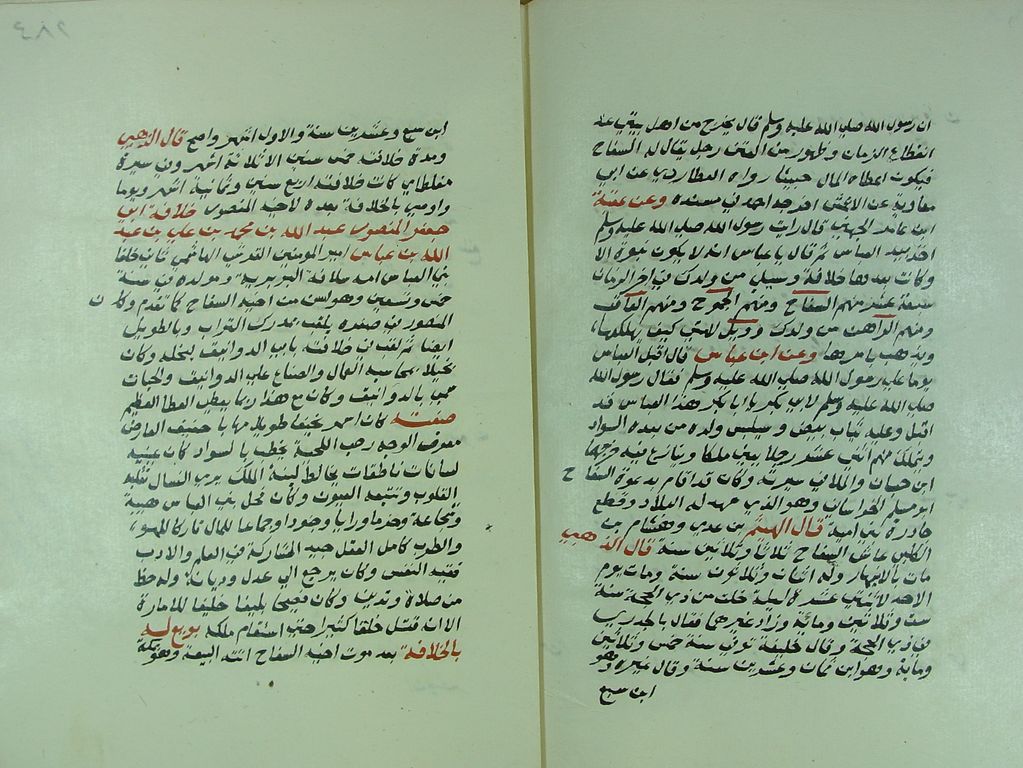 ان رسول الله صلى الله عليه وسلم قال يخرج من اهل بيتي عند
انقطاع الزمان وظهور من الفتن رجل يقال له السفاح
فيكون اعطاه المال حثيثا رواه العطاردي عن ابي
معاوية عن الاعمش اخرجه احمد في مسنده وعن عقبة
ابن عامر الجهني قال رايت رسول الله صلى الله عليه وسلم
اخذ بيد العباس ثم قال يا عباس انه لا يكون نبوة الا
وكانت بعدها خلافة وسيلي من ولدك في اخر الزمان
سبعة عشر منهم السفاح ومنهم الجموح ومنهم العاقب
ومنهم الراهن من ولدك وويل لامتي كيف يهلكها
ويذهب بامرها وعن ابن عباس قال اقبل العباس
يوما على رسول الله صلى الله عليه وسلم فقال رسول الله
صلى الله عليه وسلم لابي بكر يا ابا بكر هذا العباس قد
اقبل وعليه ثياب بيض وسيلبس ولده من بعده السواد
ويملك منهم اثني عشر رجلا يعني ملكا وينازع فيه خرجها
ابن حبان والملا في سيرته وكان قد اقام بدعوة السفاح
ابو مسلم الخراساني وهو الذي مهد له البلاد وقطع
جادرة بني امية قال الهيثم بن عدي وهشام بن
الكلبي عاش السفاح ثلاثا وثلاثين سنة قال الذهبي
مات بالانبار وله اثنان وثلاثون سنة ومات يوم
الاحد لاثنتي عشرة ليلة خلت من ذي الحجة سنة
ست وثلاثين ومائة وزاد غيرهما فقال بالجدري
في ذي الحجة وقال خليفة توفي سنة خمس وثلاثين
وماية وهو ابن ثمان وعشرين سنة وقال غيره وهو
ابن سبع
٢٨٤
ابن سبع وعشرين سنة والاول اشهر واصح قال الذهبي
ومدة خلافته خمس سنين الا ثلاثة اشهر وفي سيرة
مغلطاي كانت خلافته اربع سنين وثمانية اشهر ويوما
واوصى بالخلافة بعده لاخيه المنصور خلافة ابي
جعفر المنصور عبد الله بن محمد بن علي بن عبد
الله بن عباس امير المومنين القرشي الهاشمي ثاني خلفا
بني العباس امه سلامة البربرية ومولده في سنة
خمس وتسعين وهو اسن من اخيه السفاح كما تقدم وكان
المنصور في صغره يلقب بمدرك التراب وبالطويل
ايضا ثم لقب في خلافته بابي الدوانيق لبخله وكان
بخيلا يحاسب العمال والصناع على الدوانيق والحبات
سمي بالدوانيق وكان مع هذا ربما يعطي العطا العظيم
صفته كان اسمر نحيفا طويلا مهابا خفيف العارض
معرق الوجه رحب اللحية يخضب بالسواد كان عينيه
لسانان ناطقان يخالط لبسة الملك بزي النساك تقبله
القلوب وتتبعه العيون وكان فحل بني العباس هيبة
وشجاعة وحزما ورايا وجبروتا وجماعا للمال تاركا للهو
والطرب كامل العقل جيد المشاركة في العلم والادب
فقيه النفس وكان يرجع الى عدل وديانة وله حظ
من صلاة وتدين وكان فصيحا بليغا خليقا للامارة
الا ان قتل خلقا كثيرا حتى استقام ملكه بويع له
بالخلافة بعد موت اخيه السفاح اتته البيعة وهو بمكة